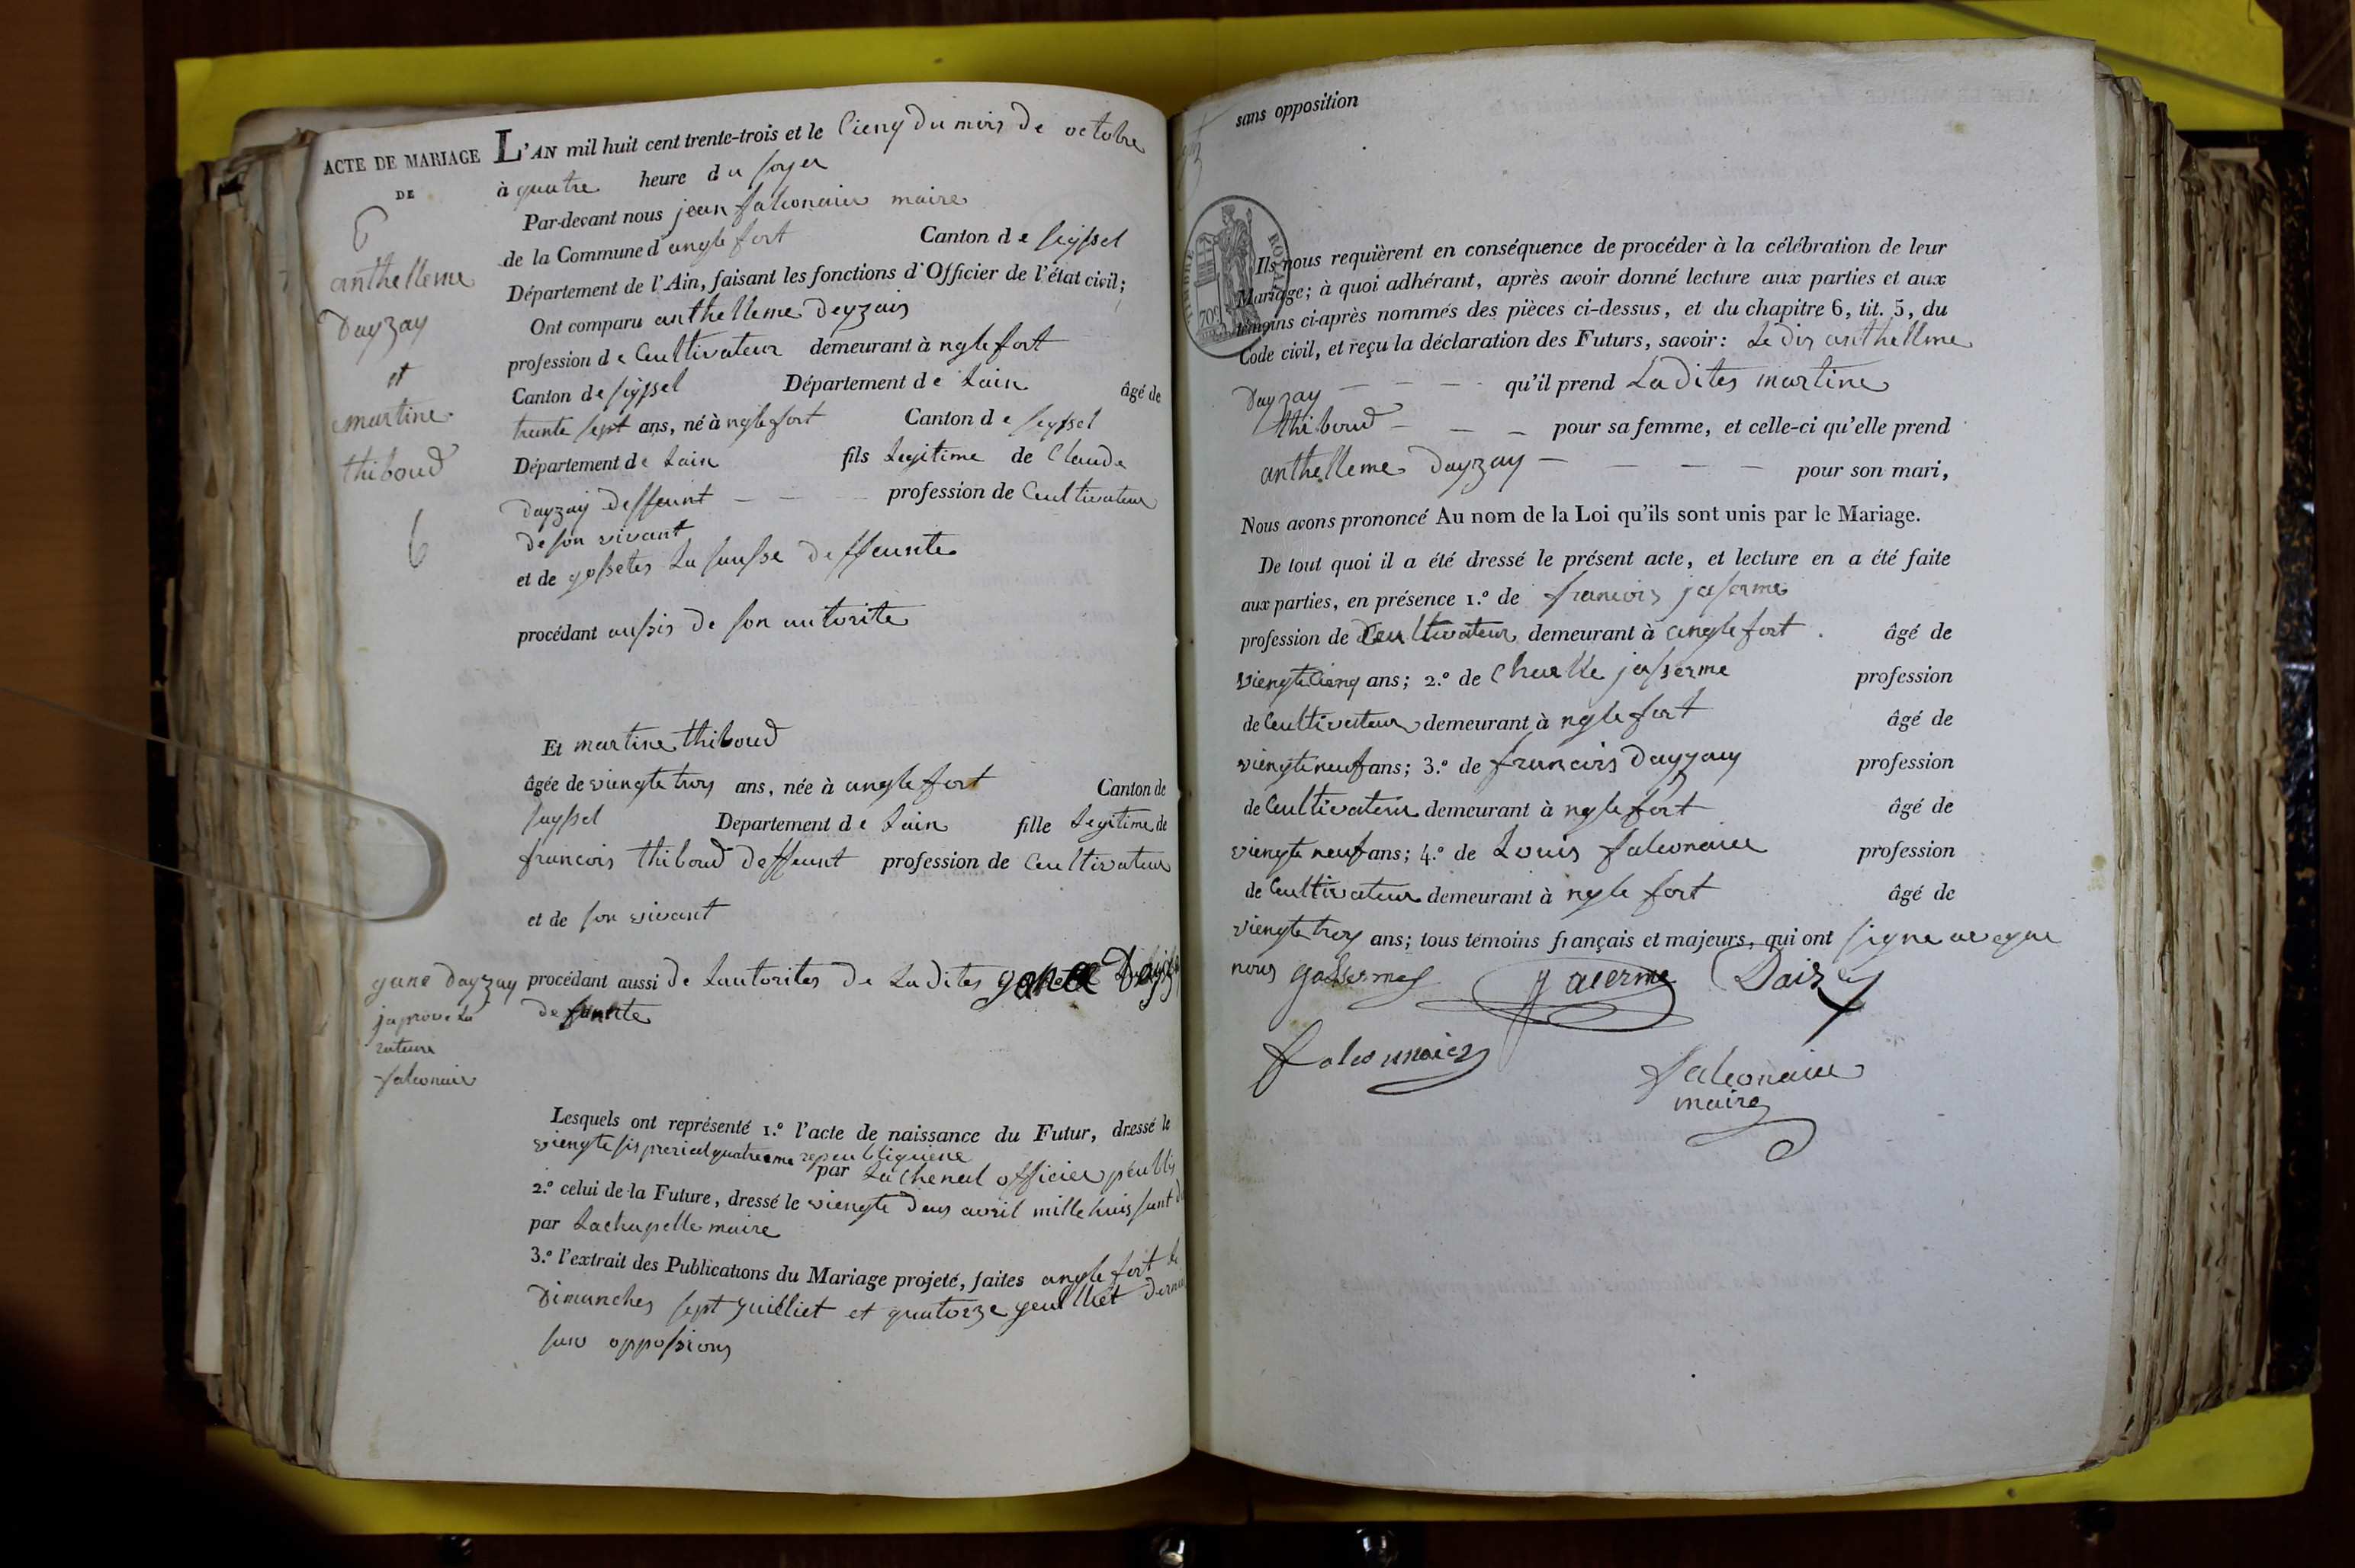 ACTE DE MARIAGE
DE
6
anthelleme
Dayzay
et
martine
thiboud
6
L'AN mil huit cent trente-trois et le Cienq du mois de octobre
à quatre heure du soyer
Par-devant nous jean falconaier maire
de la Commune d'anglefort Canton de seyssel
Département de l'Ain, faisant les fonctions d'Officier de l'état civil;
Ont comparu anthelleme Deyzais
profession de Ceultivateur demeurant à nglefort
Canton de seyssel Département de Lain âgé de
trante sept ans, né à nglefort Canton de seyssel
Département de Lain fils Legitime de Claude
Dayzay deffeunt profession de Ceultivateur
de son vivant
et de deffeunte
procédant aussis de son autorite
Et martine thiboud
âgée de viengte troys ans, née à anglefort Canton de
seyssel Département de Lain fille Legitime de
francois thiboud deffeunt profession de Ceultivateur
et de son vivant
gane Dayzay
japrove La
rateure
falconaier
procédant aussi de Lautorites de Ladites
Lesquels ont représenté 1.º l'acte de naissance du Futur, dressé le
viengte sis prerial quatreeme repeubliquiene
par Lachenal officier peublis
2.º celui de la Future, dressé le viengte deus avril mille huis sant
par Lachapelle maire
3.º l'extrait des Publications du Mariage projeté, faites anglefort le
Dimanches sept juilliet et quatorze geulliet dernier
sans oppossions
sans opposition
TIMBRE ROYAL
70c
Ils nous requièrent en conséquence de procéder à la célébration de leur
Mariage; à quoi adhérant, après avoir donné lecture aux parties et aux
témoins ci-après nommés des pièces ci-dessus, et du chapitre 6, tit. 5, du
Code civil, et reçu la déclaration des Futurs, savoir: Le dis anthelleme
Dayzay - - - qu'il prend La dites martine
thiboud - - - pour sa femme, et celle-ci qu'elle prend
anthelleme Dayzay - - - - pour son mari,
Nous avons prononcé Au nom de la Loi qu'ils sont unis par le Mariage.
De tout quoi il a été dressé le présent acte, et lecture en a été faite
aux parties, en présence 1.º de francois jaserme
profession de Ceultivateur demeurant à anglefort âgé de
viengtecienq ans; 2.º de Charlle jasserme profession
de Ceultivateur demeurant à nglefort âgé de
viengteneuf ans; 3.º de francois Dayzay profession
de Ceultivateur demeurant à nglefort âgé de
viengte neuf ans; 4.º de Louis falconaier profession
de Ceultivateur demeurant à nglefort âgé de
viengte troy ans; tous témoins français et majeurs, qui ont signe aveque
nous
falconaier
maire